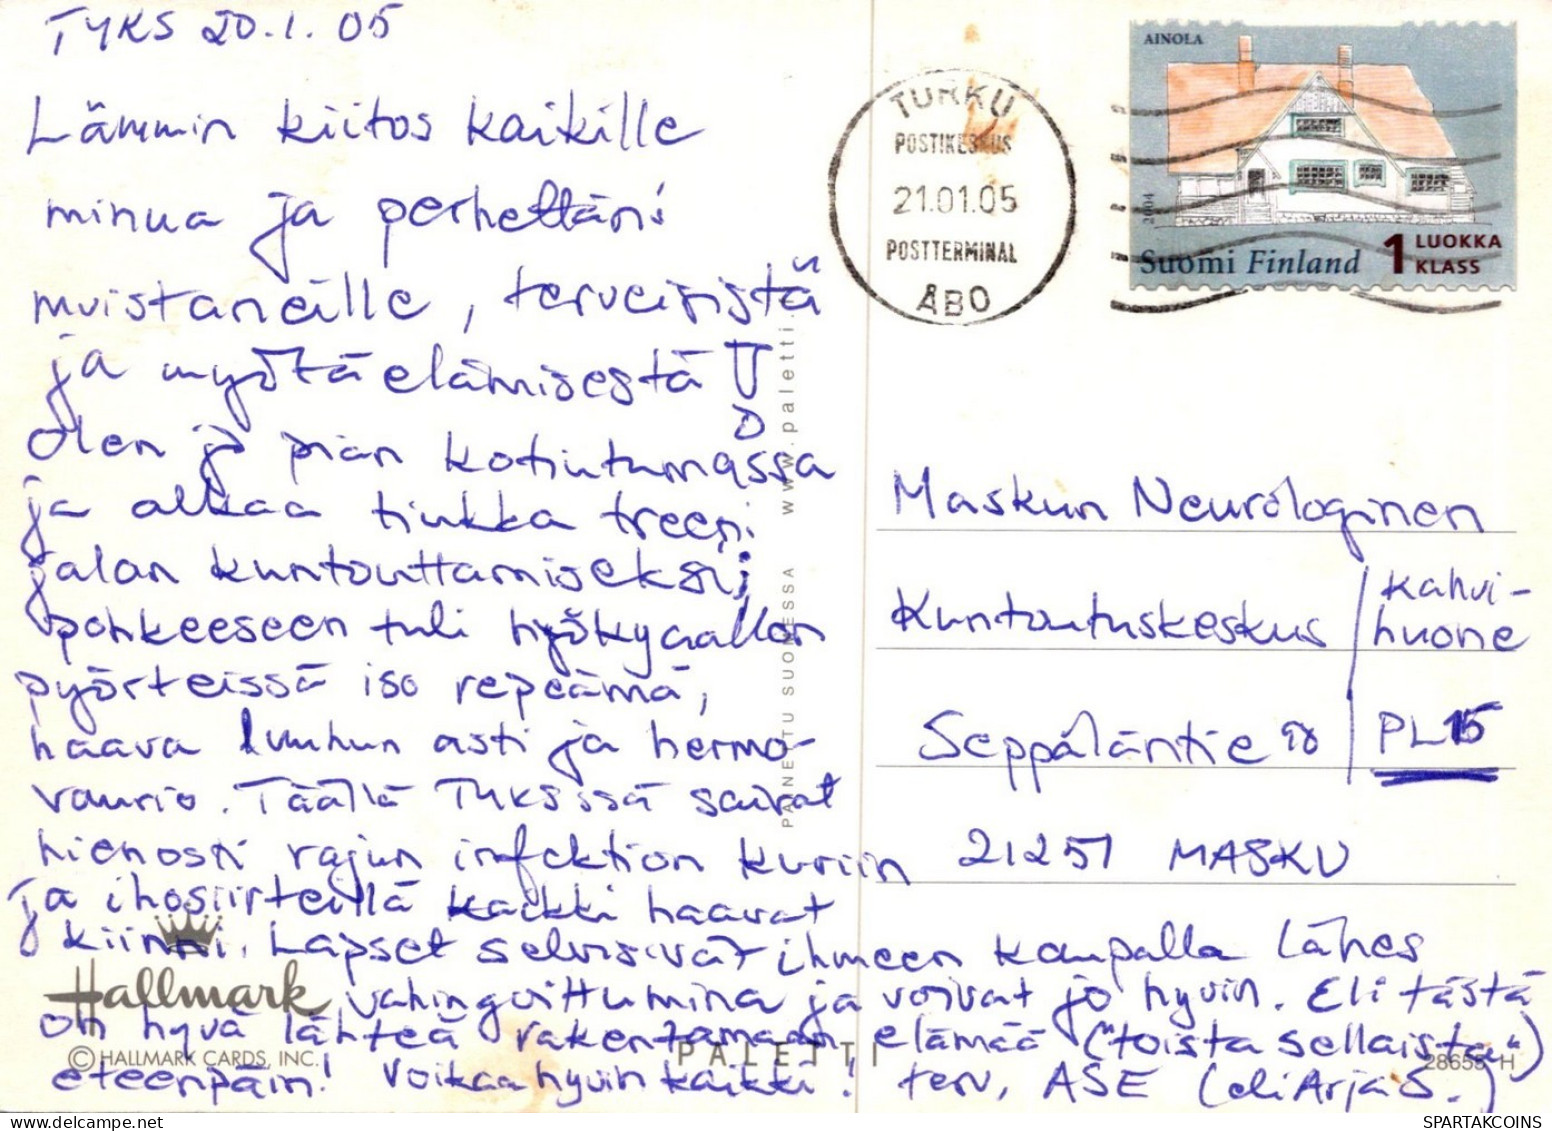 TYKS 20.1.05
Lämmin kiitos kaikille
minua ja perhettäni
muistaneille, terveisistä
ja myötäelämisestä!
Olen jo pian kotiutumassa
ja alkaa tiukka treeni
jalan kuntouttamiseksi;
pohkeeseen tuli hyökyaallon
pyörteissä iso repeämä,
haava luuhun asti ja hermo-
vaurio. Täällä TYKSissä saivat
hienosti rajun infektion kuriin
ja ihosiirteillä kaikki haavat
kiinni. Lapset selvisivät ihmeen kaupalla lähes
vahingoittumina ja voivat jo hyvin. Eli tästä
on hyvä lähteä rakentamaan elämää ("toista sellaista")
eteenpäin! Voikaa hyvin kaikki! terv, ASE (eli Arja S.)
TURKU
POSTIKESKUS
21.01.05
POSTTERMINAL
ÅBO
AINOLA
2004
Suomi Finland 1 LUOKKA
KLASS
Maskun Neurologinen
Kuntoutuskeskus / Kahvi-
huone
Seppäläntie 90 PL 15
21251 MASKU
PAINETTU SUOMESSA www.paletti.
Hallmark
© HALLMARK CARDS, INC.
PALETTI
28655 H
SPARTAKCOINS
WWW.SPARTAKCOINS.COM